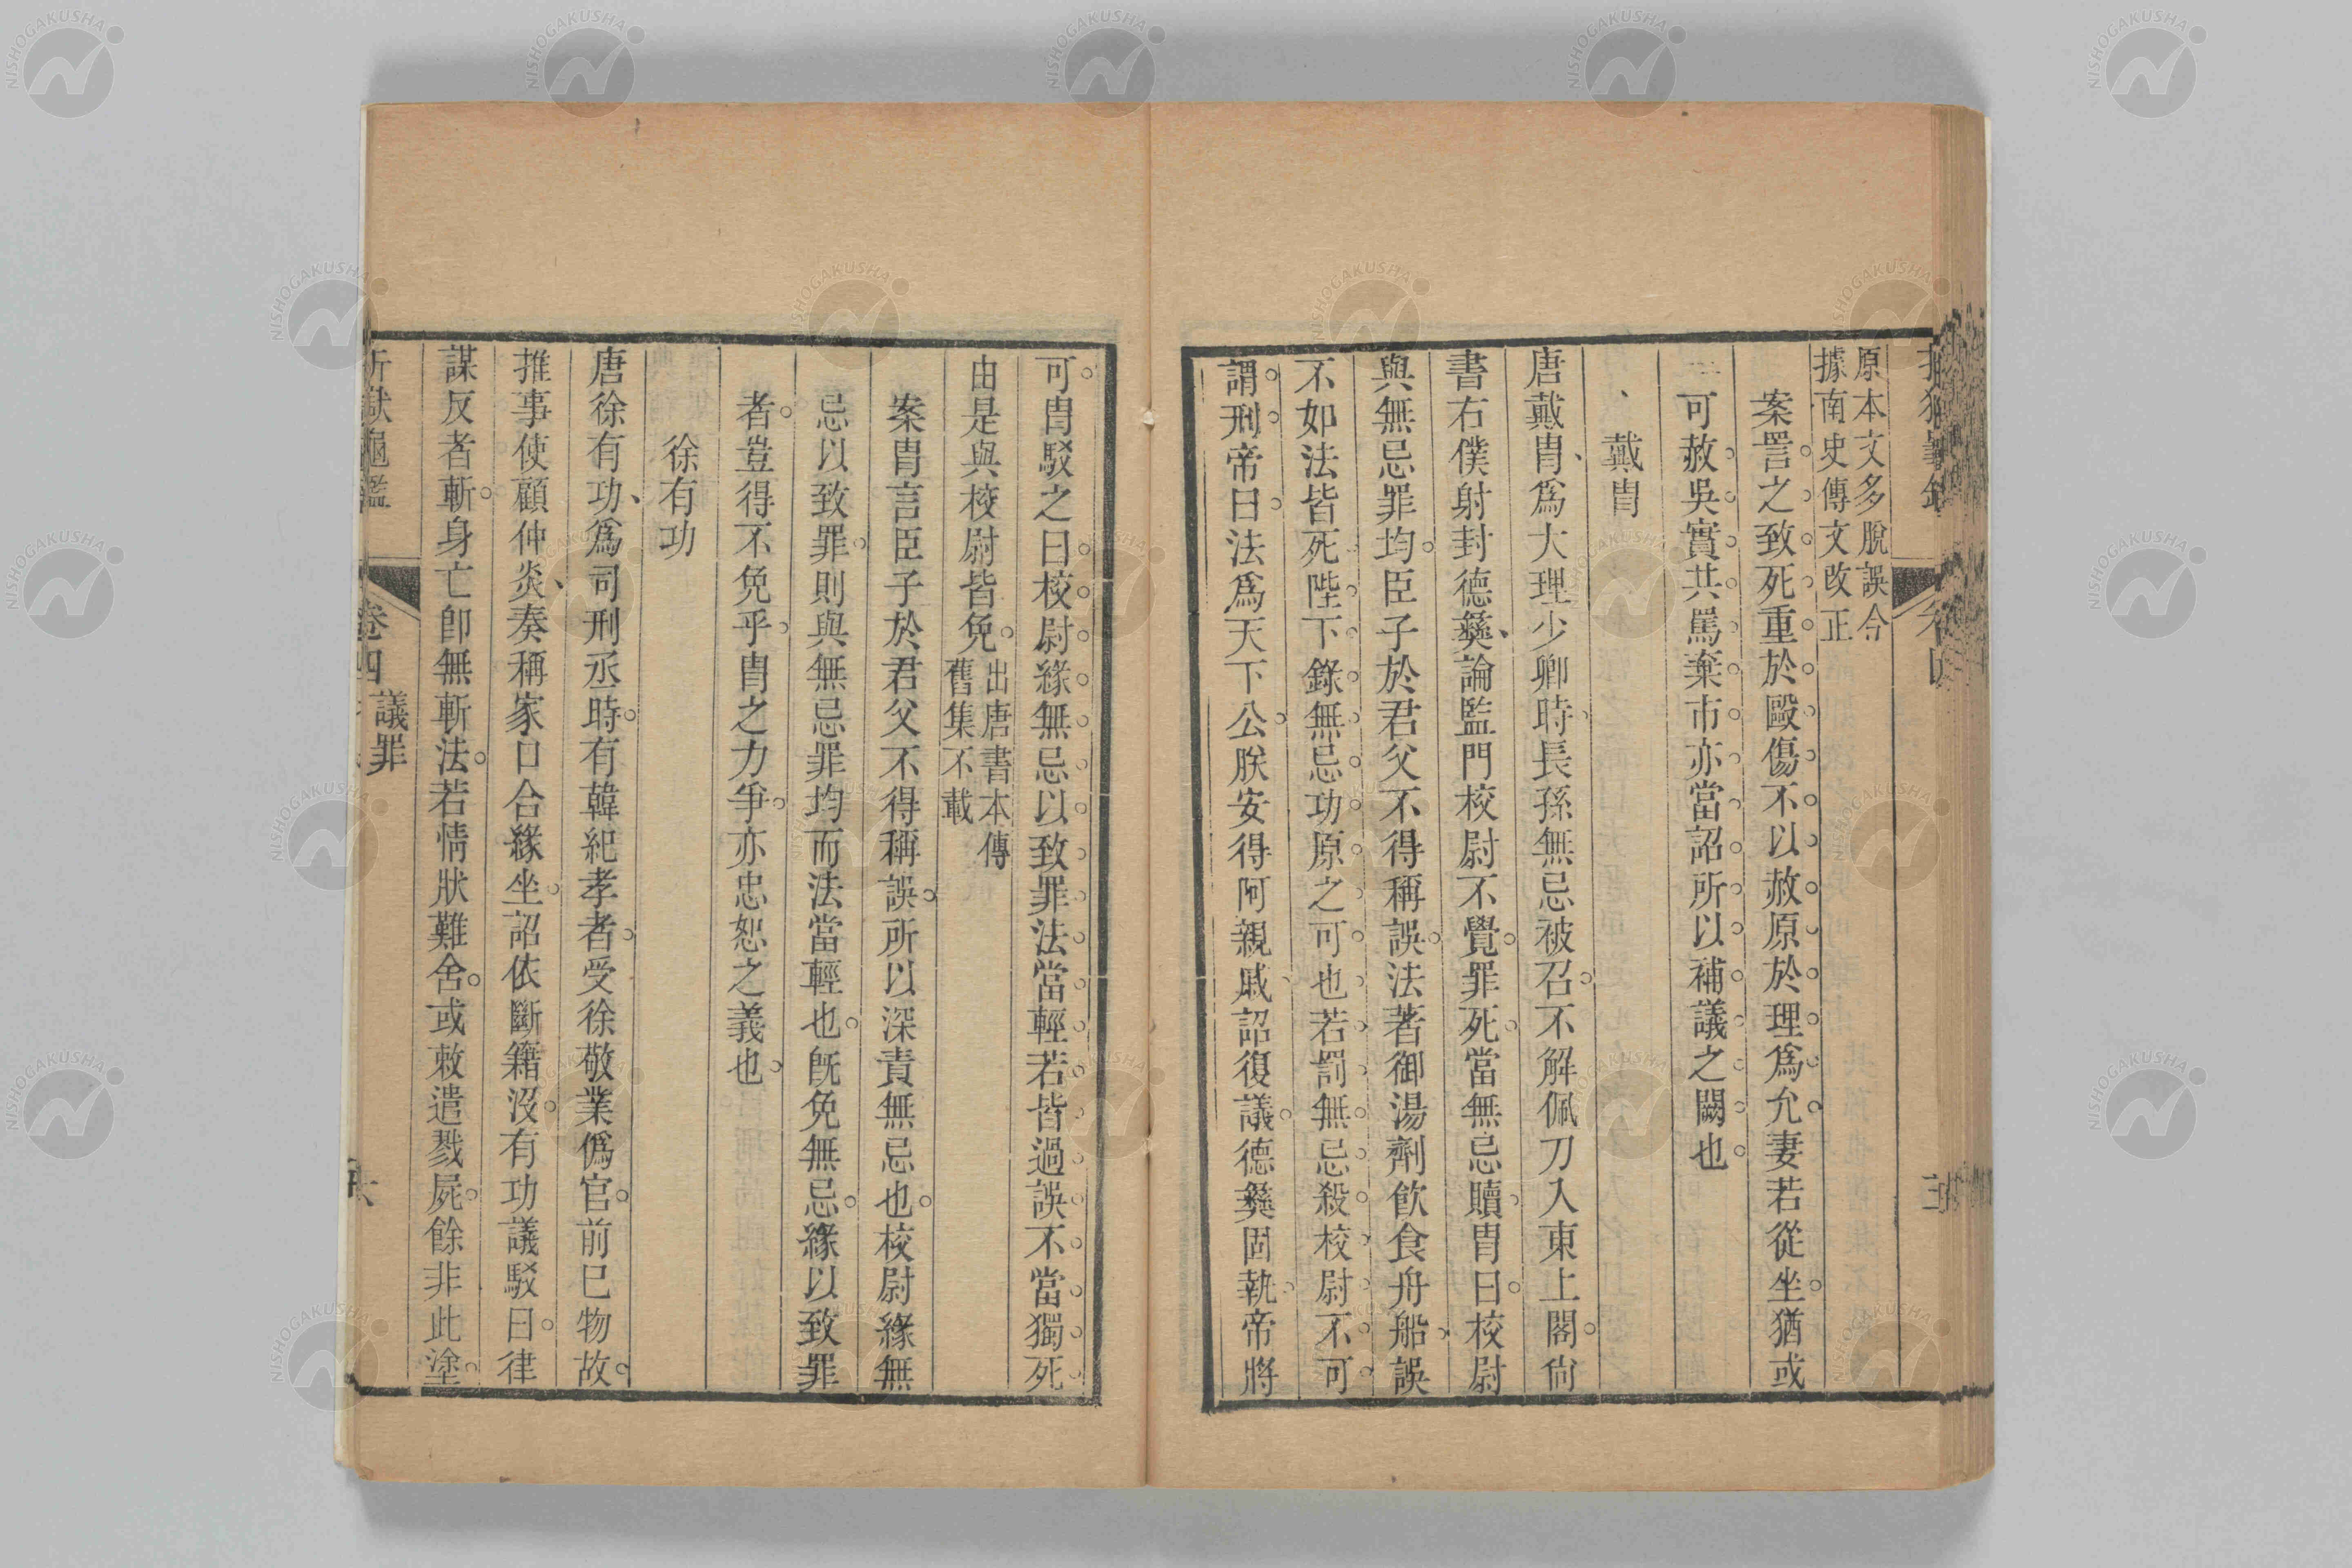 原本文多脫誤今
據南史傳文改正
案詈之致死重於毆傷不以赦原於理爲允妻若從坐猶或
可赦吳實共罵棄市亦當詔所以補議之闕也
戴胄
唐戴胄爲大理少卿時長孫無忌被召不解佩刀入東上閣尙
書右僕射封德彝論監門校尉不覺罪死當無忌贖胄曰校尉
與無忌罪均臣子於君父不得稱誤法著御湯劑飮食舟船誤
不如法皆死陛下錄無忌功原之可也若罰無忌殺校尉不可
謂刑帝曰法爲天下公朕安得阿親戚詔復議德彝固執帝將
可胄駁之曰校尉緣無忌以致罪法當輕若皆過誤不當獨死
由是與校尉皆免出唐書本傳
舊集不載
案胄言臣子於君父不得稱誤所以深責無忌也校尉緣無
忌以致罪則與無忌罪均而法當輕也旣免無忌緣以致罪
者豈得不免乎胄之力爭亦忠恕之義也
徐有功
唐徐有功爲司刑丞時有韓紀孝者受徐敬業僞官前已物故
推事使顧仲炎奏稱家口合緣坐詔依斷籍沒有功議駁曰律
謀反者斬身亡卽無斬法若情狀難舍或敕遣戮屍餘非此塗
折獄龜鑑
卷四 議罪
NISHOGAKUSHA